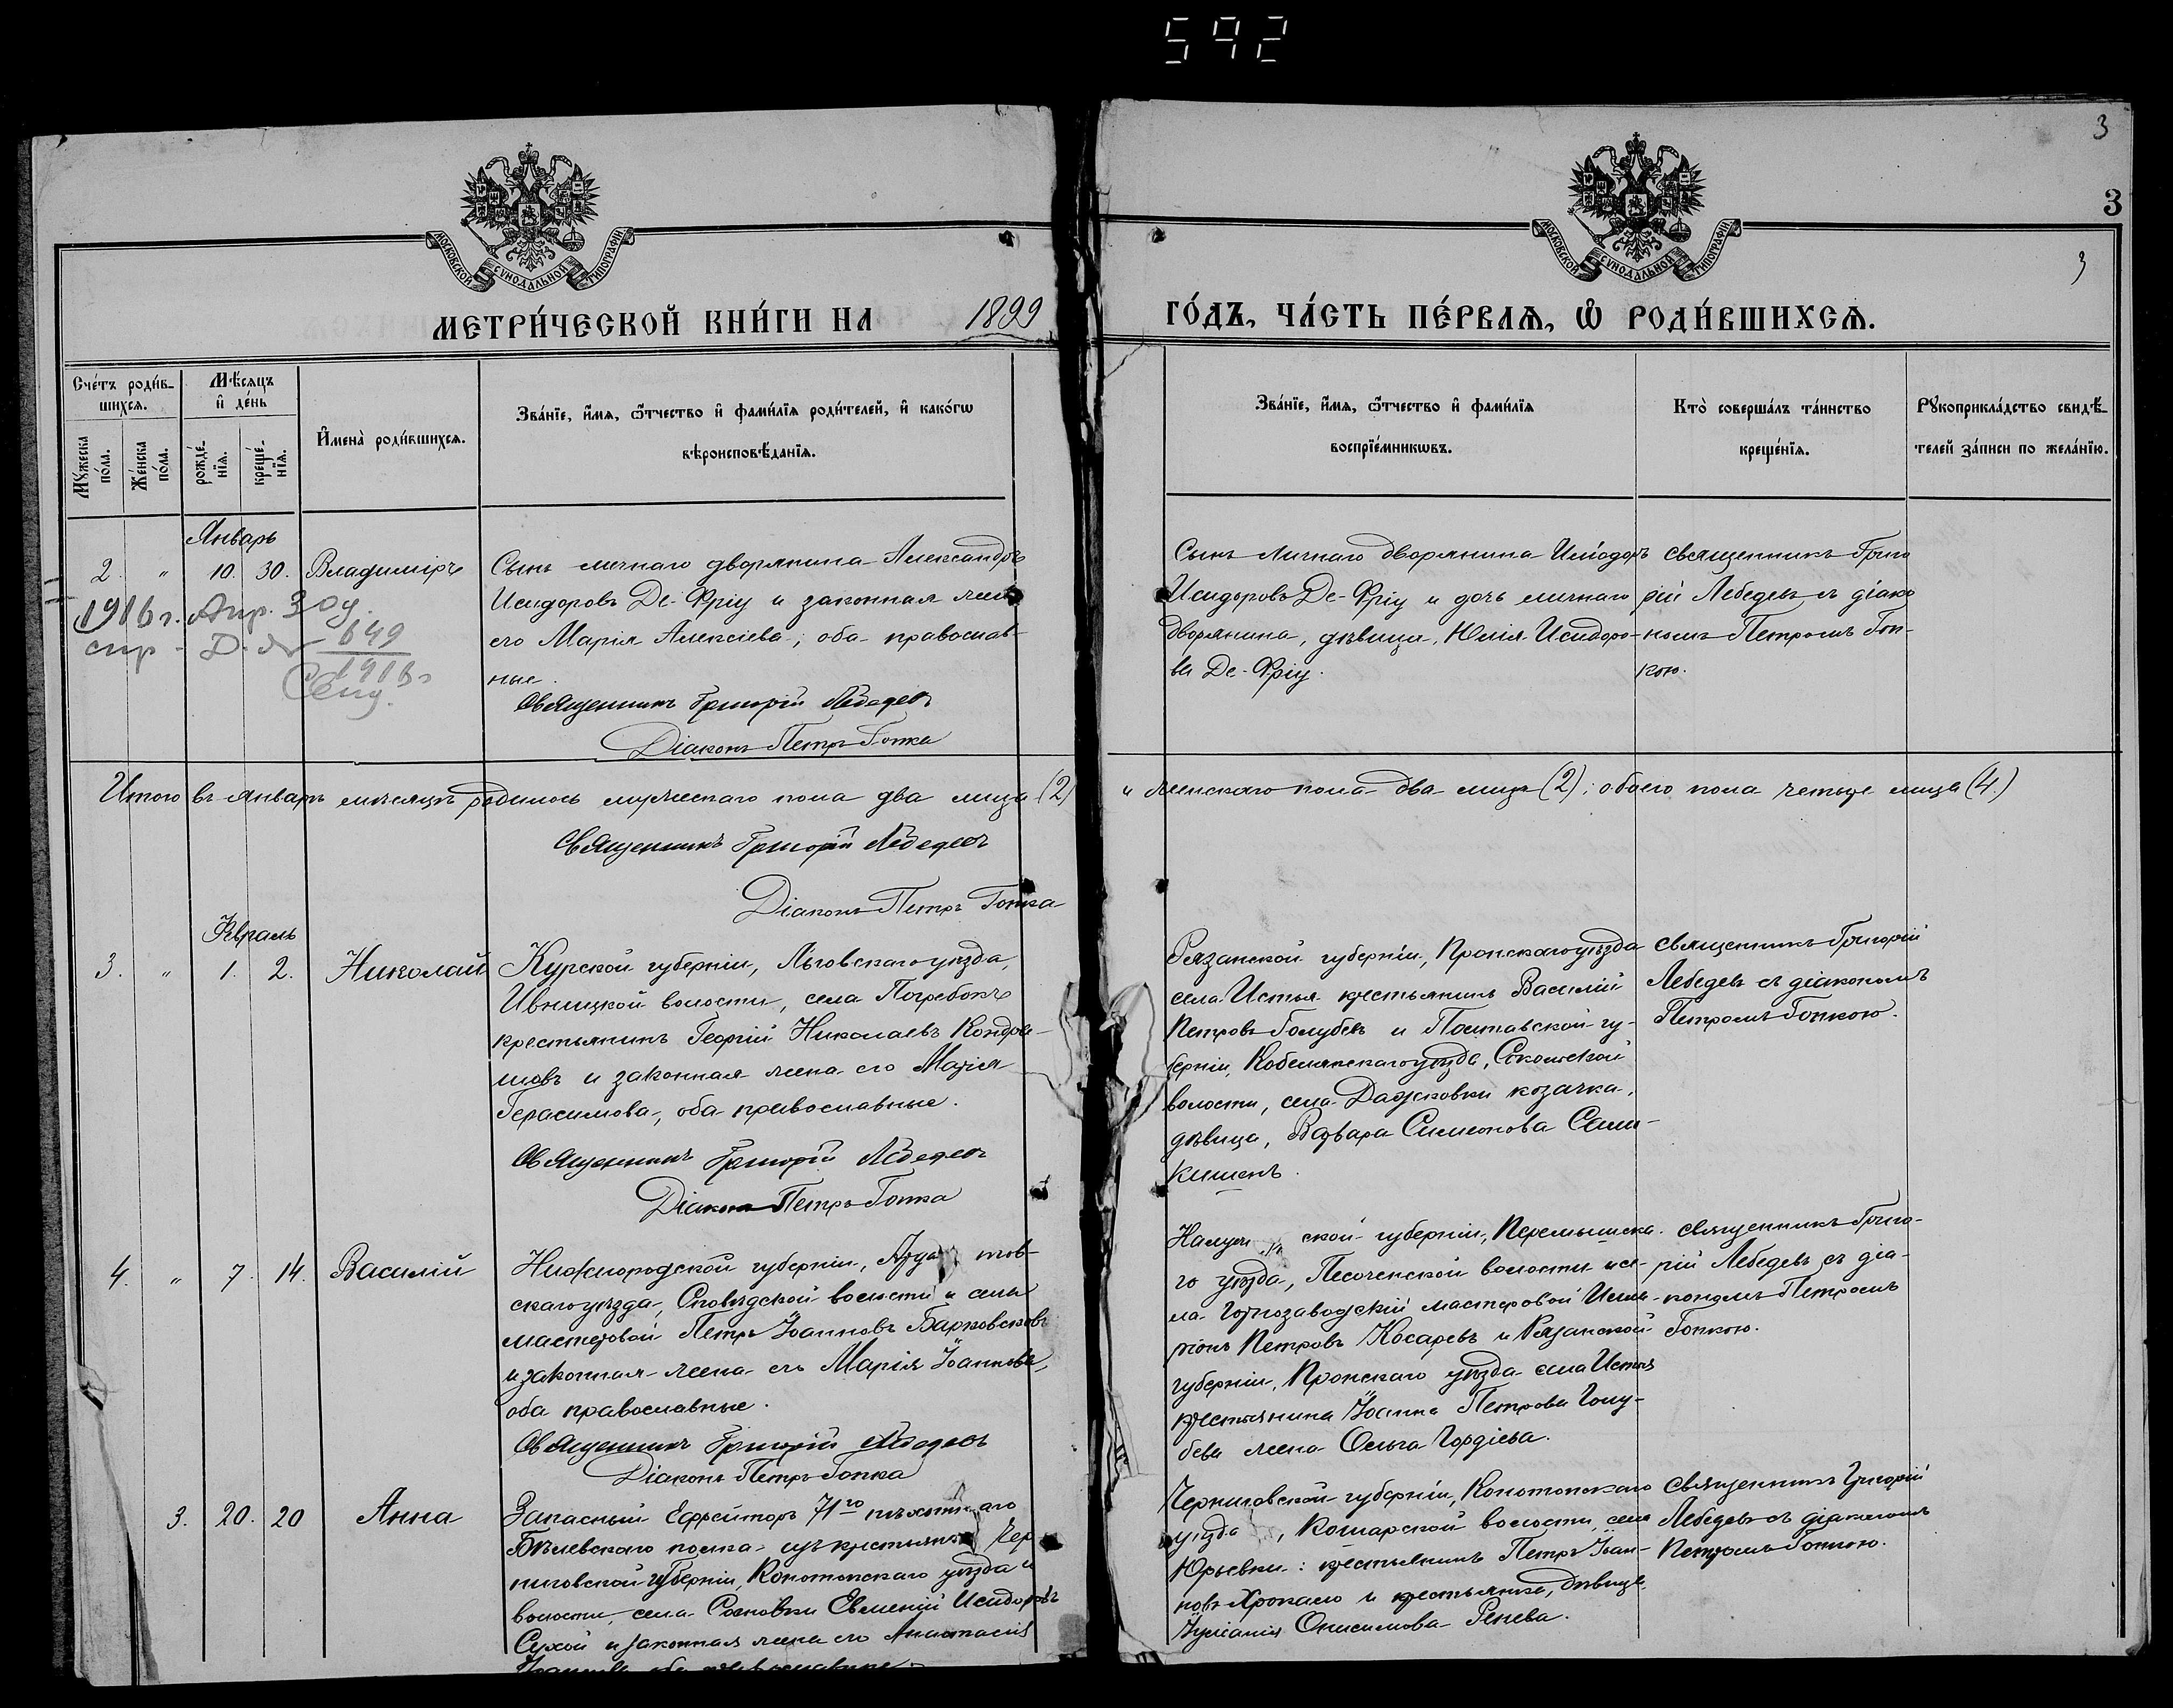 592
3
3
3
МОСКОВСКОЙ СѴНОДАЛЬНОЙ ТИПОГРАФІИ
МОСКОВСКОЙ СѴНОДАЛЬНОЙ ТИПОГРАФІИ
МЕТРИ́ЧЕСКОЙ КНИ́ГИ НА 1899 ГО́ДЪ, ЧА́СТЬ ПЕ́РВАѦ, Ѡ РОДИ́ВШИХСѦ.
Счетъ родив-
шихся.
Мѣсяцъ
и день
Мꙋжеска пола.
Женска пола.
рожде-
нїя.
креще-
нїя.
Имена родившихся.
Званїе, имя, ѿчество и фамилїя родителей, и какогѡ
вѣроисповѣданїя.
Званїе, имя, ѿчество и фамилїя
воспрїемникѡвъ.
Кто совершалъ таинство
крещенїя.
Рꙋкоприкладство свидѣ-
телей записи по желанїю.
Январь
2. " 10. 30. Владиміръ
Сынъ личнаго дворянина Александръ
Исидоровъ Де-Фріу и законная жена
его Марія Алексіева, оба православ-
ные.
Священникъ Григорій Лебедевъ
Діаконъ Петръ Гопка
1916 г. Апр. 30 у.
649
1916
Сынъ личнаго дворянина Исидоръ
Исидоровъ Де-Фріу и дочь личнаго
дворянина, дѣвица, Юлія Исидоро-
ва Де-Фріу.
священникъ Григо
рій Лебедевъ съ діако
номъ Петромъ Гоп-
кою.
Итого въ январѣ мѣсяцѣ родилось мужескаго пола два лица (2) и женскаго пола два лица (2); обоего пола четыре лица (4.)
Священникъ Григорій Лебедевъ
Діаконъ Петръ Гопка
Февраль
3. " 1. 2. Николай
Курской губерніи, Льговскаго уѣзда,
Ивницкой волости, села Погребокъ
крестьянинъ Георгій Николаевъ Кондра-
шовъ и законная жена его Марія
Герасимова, оба православные.
Священникъ Григорій Лебедевъ
Діаконъ Петръ Гопка
Рязанской губерніи, Пронскаго уѣзда
села Истья крестьянинъ Василій
Петровъ Голубевъ и Полтавской гу-
берніи, Кобелякскаго уѣзда, Сокольской
волости, села Дашковки козачка,
дѣвица, Варвара Симеонова Сами-
кишенъ.
священникъ Григорій
Лебедевъ съ діакономъ
Петромъ Гопкою.
4. " 7. 14. Василій
Нижегородской губерніи, Арда тов-
скаго уѣзда, волости и села
мастеровой Петръ Іоанновъ Барковсковъ
и законная жена его Марія Іоаннова,
оба православные.
Священникъ Григорій Лебедевъ
Діаконъ Петръ Гопка
Калуж ской губерніи, Перемышльска-
го уѣзда, Песоченской волости и се-
ла горнозаводскій мастеровой Ила-
ріонъ Петровъ Косаревъ и Рязанской
губерніи, Пронскаго уѣзда села Истья
крестьянина Іоанна Петрова Голу-
бева жена Ольга Гордіева.
священникъ Григо-
рій Лебедевъ съ діа-
кономъ Петромъ
Гопкою.
3. 20. 20 Анна
Запасный Ефрейторъ 71го пѣхотнаго
Бѣлевскаго полка изъ крестьянъ Чер
ниговской губерніи, Конотопскаго уѣзда и
волости, села Сосновки Евменій Исидоровъ
Сухой и законная жена его Анастасія
оба православные.
Черниговской губерніи, Конотопскаго
уѣзда, волости, села
Юрьевки: крестьянинъ Петръ Іоан-
новъ Хропало и крестьянка, дѣвица
Іуліанія Онисимова Ренева.
священникъ Григорій
Лебедевъ съ діакономъ
Петромъ Гопкою.